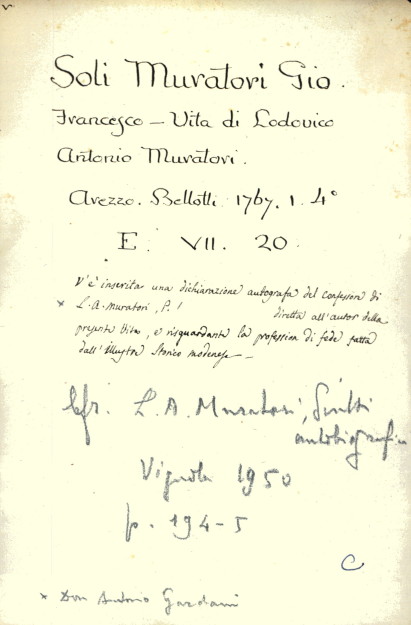 Soli Muratori Gio.
Francesco – Vita di Lodovico
Antonio Muratori.
Arezzo. Bellotti. 1767. 1. 4°
E. VII. 20
V'è inserita una dichiarazione autografa del confessore di
× L. A. Muratori, P. ! diretta all'autor della
presente Vita, e risguardante la profession di fede fatta
dall'illustre Storico modenese –
Cfr. L. A. Muratori, Scritti
autobiografici
Vignola 1950
p. 194-5
C
× Don Antonio Gardani